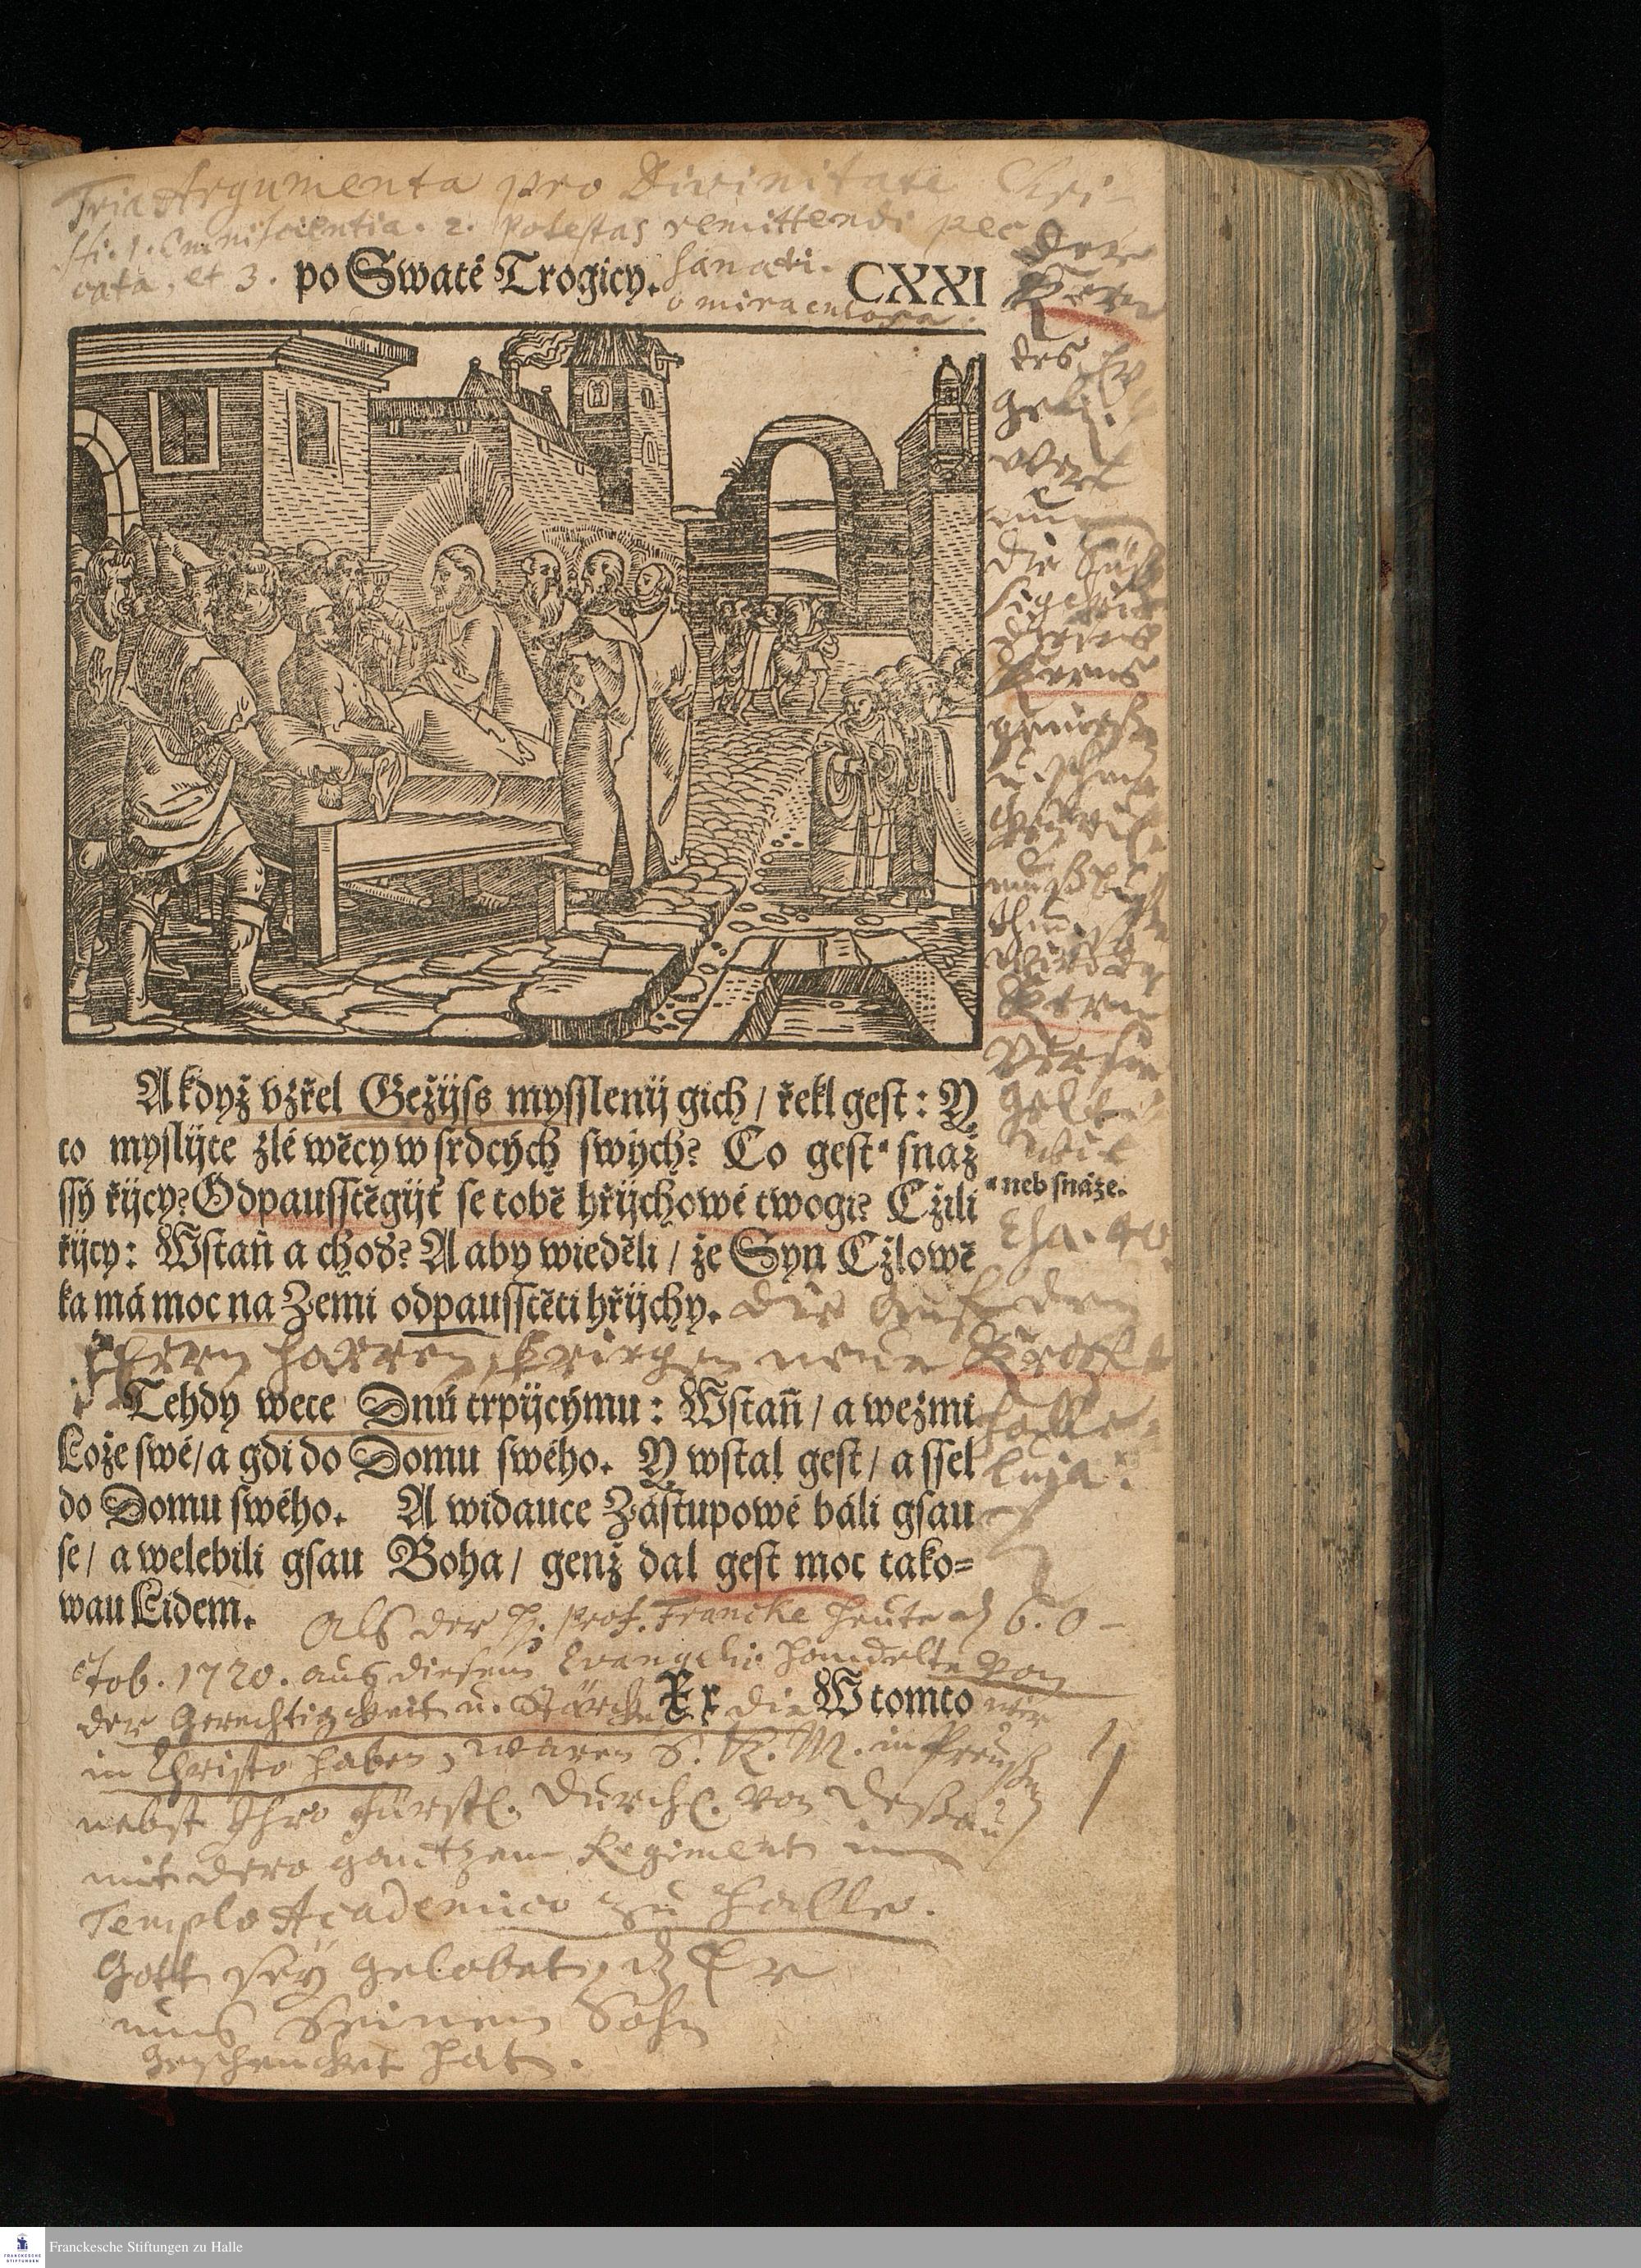 Tria Argumenta pro Divinitate Chri-
sti. 1. Omniscientia. 2. Potestas remittendi pec
cata, et 3. sanati-
o miraculosa.
po Swaté Trogicy. CXXI
Der
Kern
des Ev
geli.
die Süß
Kerns
Kern
A když vzřel Gežijss mysslenij gich / řekl gest: Y
co myslijte zlé wěcy w srdcých swých? Co gest * snaž
ssý řijcy? Odpausstěgijť se tobě hřijchowé twogi? Cžili
řijcy: Wstaň a choď? A aby wieděli / že Syn Cžlowě
ka má moc na Zemi odpausstěti hřijchy.
* neb snáze.
Esa. 40
die auf den
Herrn harren, kriegen neue Krafft
Halle-
luja!
Tehdy wece Dnú trpijcýmu: Wstaň / a wežmi
Lože swé / a gdi do Domu swého. Y wstal gest / a ssel
do Domu swého. A widauce Zástupowé báli gsau
se / a welebili gsau Boha / genž dal gest moc tako-
wau Lidem.
Als der H. Prof. Francke heute d. 6. O-
ctob. 1720. aus diesem Evangelio handelte von
der Gerechtigkeit u. Stärcke die wir
Xx W tomto
in Christo haben, waren S. K. M. in Preußen
nebst Ihro Fürstl. Durchl. von Deßau
mit dero gantzem Regiment im
Templo Academico zu Halle.
Gott sey gelobet, dz Er
uns Seinen Sohn
geschencket hat.
Franckesche Stiftungen zu Halle
FRANCKESCHE STIFTUNGEN